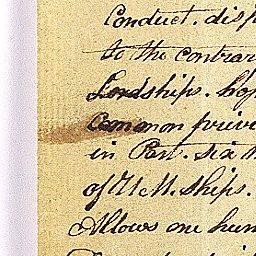 Conduct. disp
to the contrar
Lordships. hop
Common prive
in Port. six m
of H.M. Ships.
Allows one hun